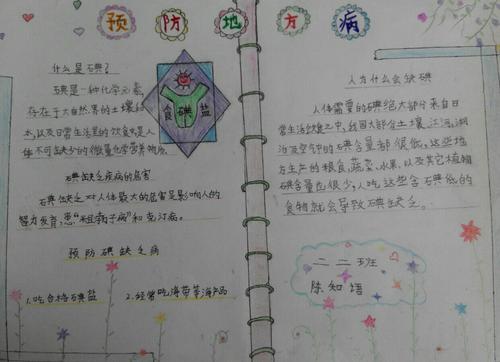 预防地方病
什么是碘?
碘是一种化学元素,
存在于大自然界的土壤和
水,以及日常生活里的饮食中是人
体不可缺少的微量化学营养物质。
食碘盐
碘缺乏疾病的危害
碘缺乏对人体最大的危害是影响人的
智力发育,患“粗脖子病”和克汀病。
预防碘缺乏病
1.吃合格碘盐
2.经常吃海带等海产品
人为什么会缺碘
人体需要的碘绝大部分来自日
常生活饮食之中,我国大部分土壤、江河、湖
泊及空气中的碘含量都很低。这些地
方生产的粮食、蔬菜、水果、以及其它植物
碘含量应很少,人吃这些含碘低的
食物就会导致碘缺乏。
二二班
陈知语